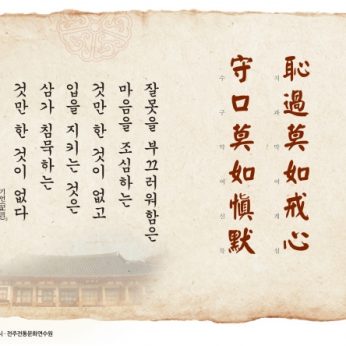 恥過莫如戒心
치과막여계심
守口莫如愼默
수구막여신묵
잘못을 부끄러워함은
마음을 조심하는
것만 한 것이 없고
입을 지키는 것은
삼가 침묵하는
것만 한 것이 없다
기언(記言)
시 · 전주전통문화연수원